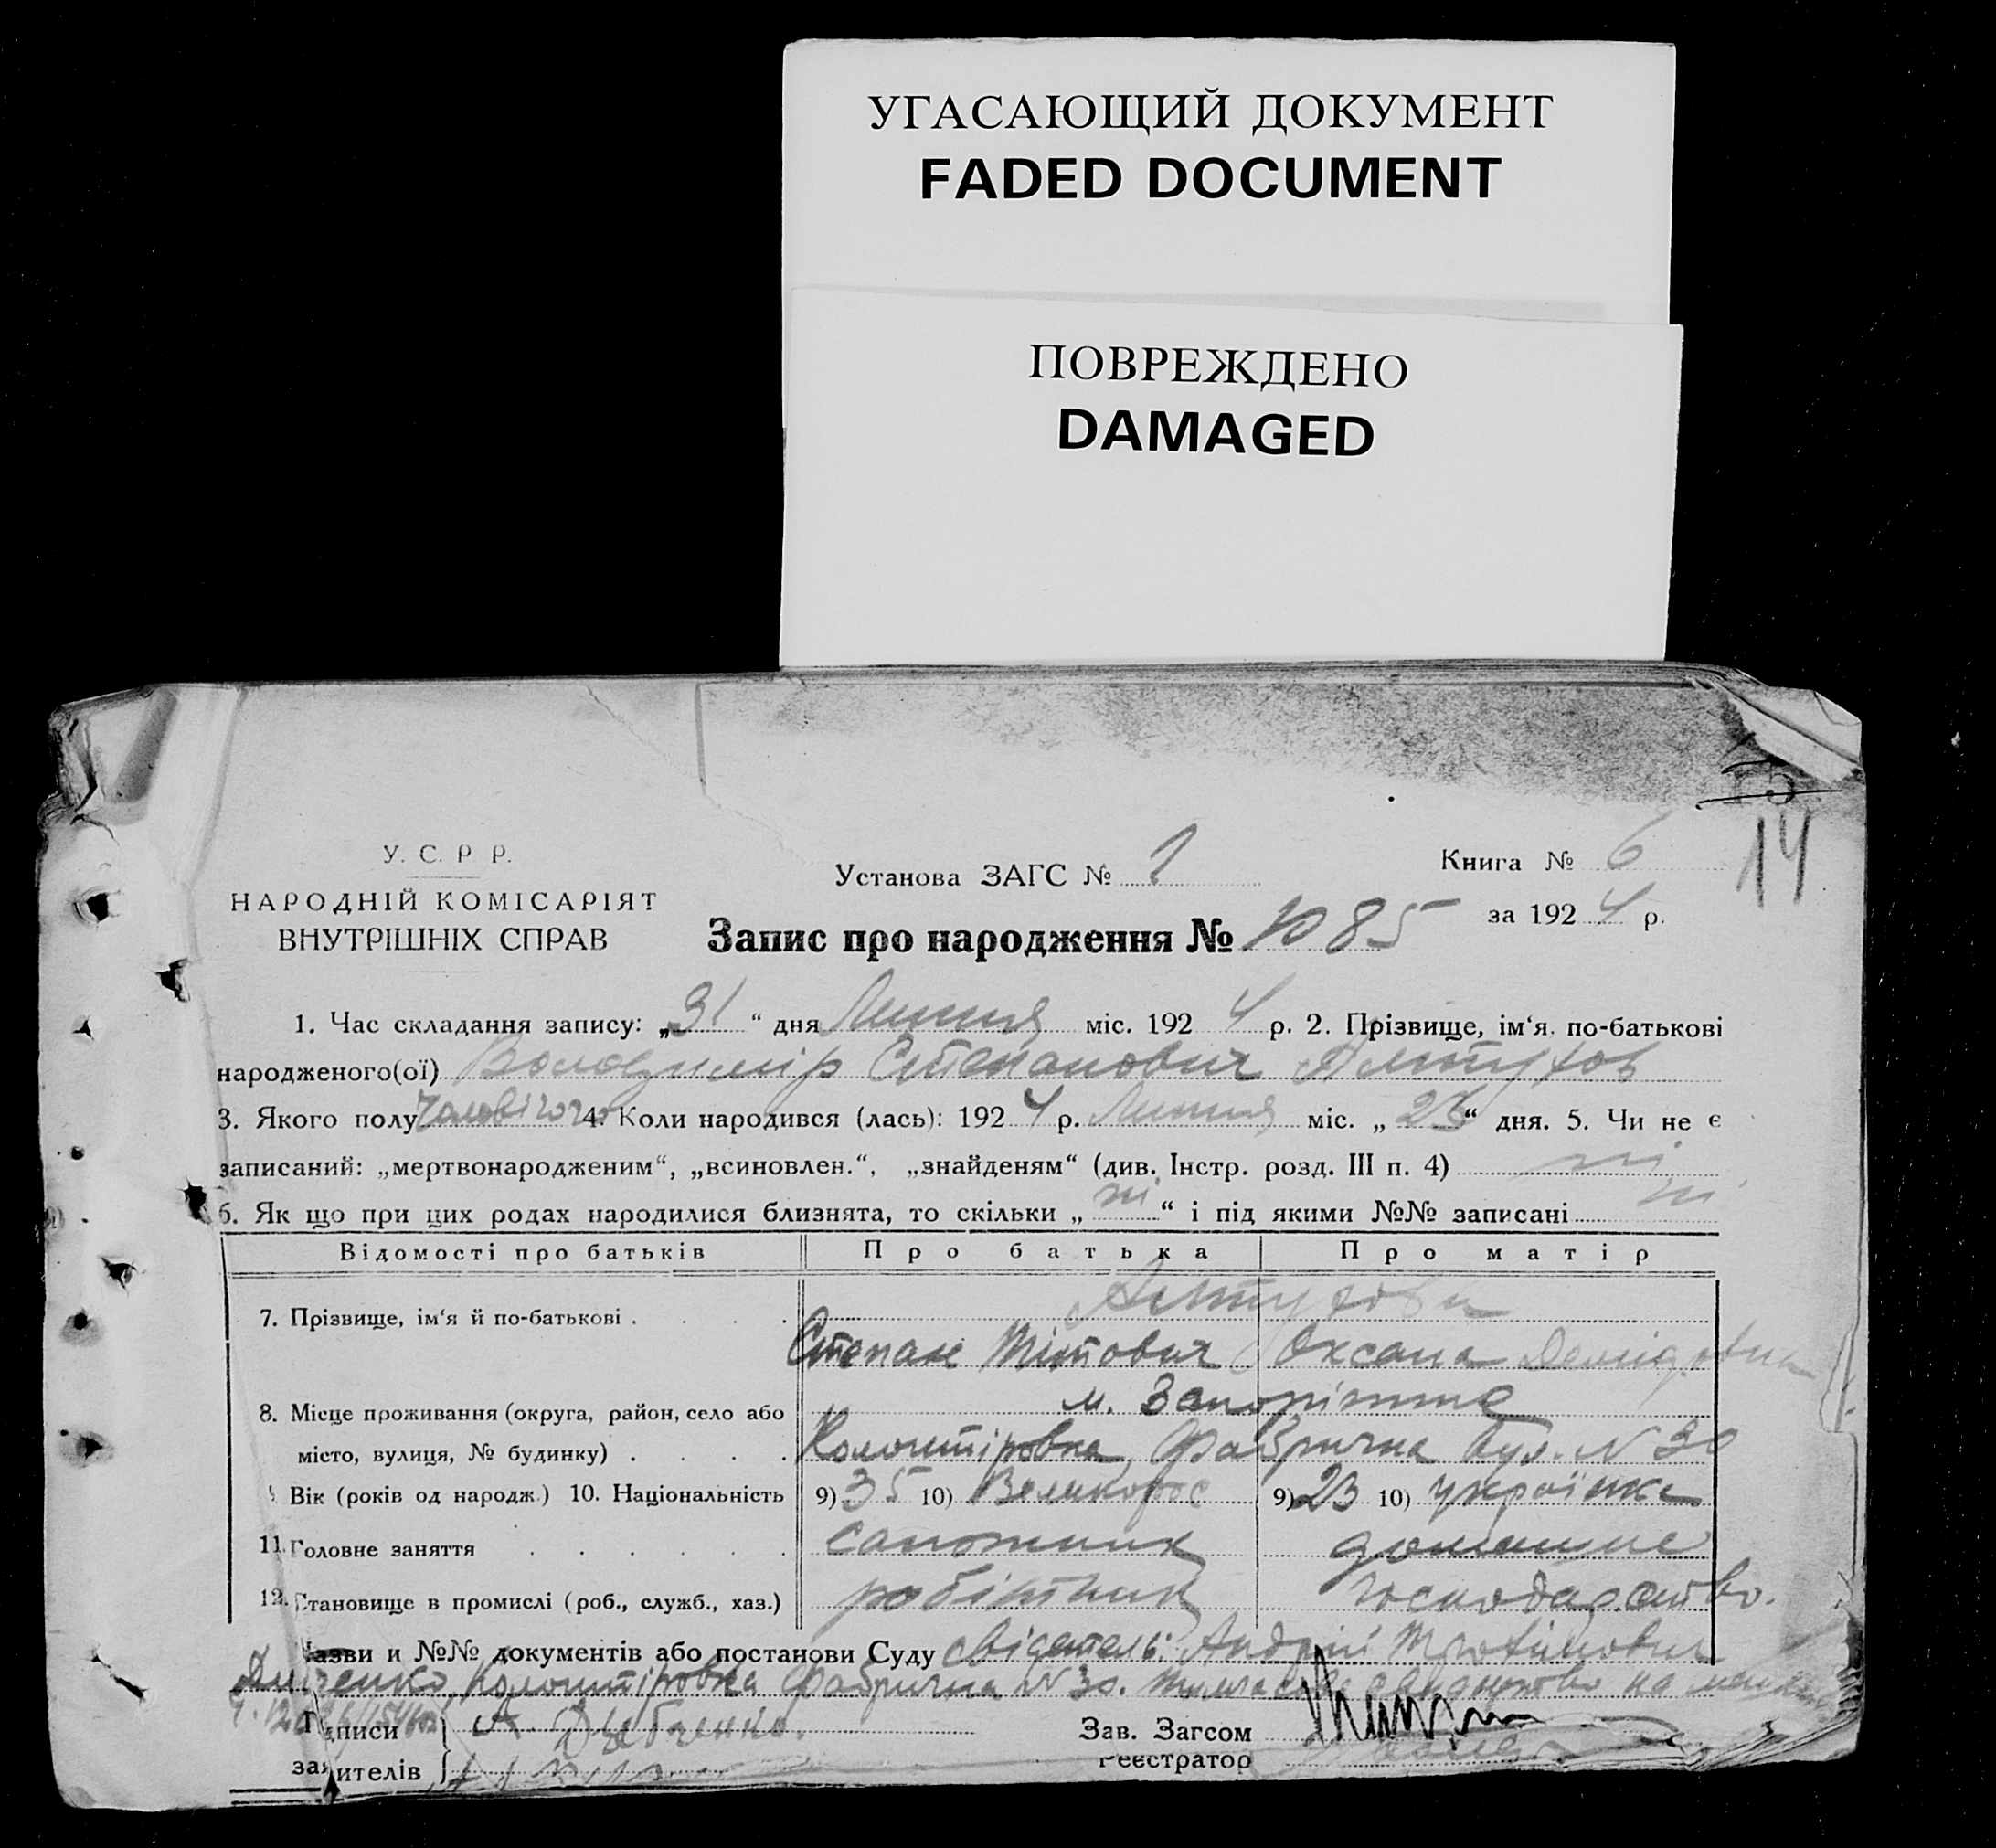 УГАСАЮЩИЙ ДОКУМЕНТ
FADED DOCUMENT
ПОВРЕЖДЕНО
DAMAGED
14
У. С. Р Р.
НАРОДНІЙ КОМІСАРІЯТ
ВНУТРІШНІХ СПРАВ
Установа ЗАГС № 1
Книга № 6
за 192 4 р.
Запис про народження № 1085
1. Час складання запису: „31“ дня Липня міс. 192 4 р. 2. Прізвище, ім‘я. по-батькові
народженого(ої) Володимір Степанович Алтухов
3. Якого полу чоловічого 4. Коли народився (лась): 192 4 р. Липня міс. „ 23“ дня. 5. Чи не є
записаний: „мертвонародженим“, „всиновлен.“, „знайденям“ (див. Інстр. розд. III п. 4) ні
6. Як що при цих родах народилися близнята, то скільки „ ні “ і під якими №№ записані ні
Відомості про батьків Про батька Про матір
7. Прізвище, ім‘я й по-батькові . . . . Алтухови
Степан Тітович Оксана Демідовна
8. Місце проживання (округа, район, село або м. Запоріжжа
місто, вулиця, № будинку) . . . . Колонтіровка, Фабрична вул. N 30
Вік (років од народж.) 10. Національність 9) 35 10) Великорос 9) 23 10) українка
11. Головне заняття . . . . . . сапожник домашне
12. Становище в промислі (роб., служб., хаз.) робітник господарство.
Назви и №№ документів або постанови Суду свідетель: Андрій
Колонтіровка Фабрична N 30. на
Підписи А.
заявителів
Зав. Загсом
Реєстратор